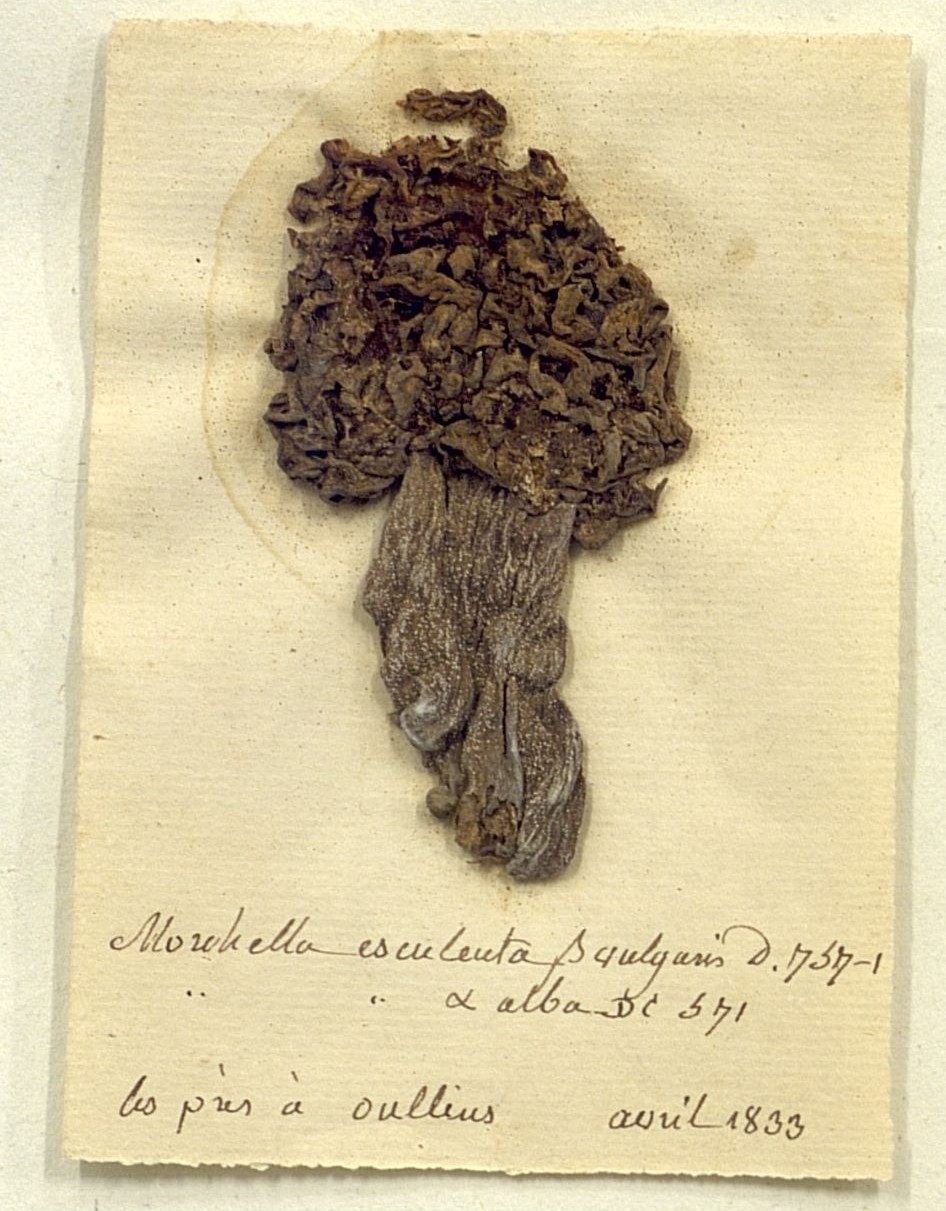 Morchella esculenta β vulgaris D. 757-1
" " α alba DC 571
les près à oullins avril 1833